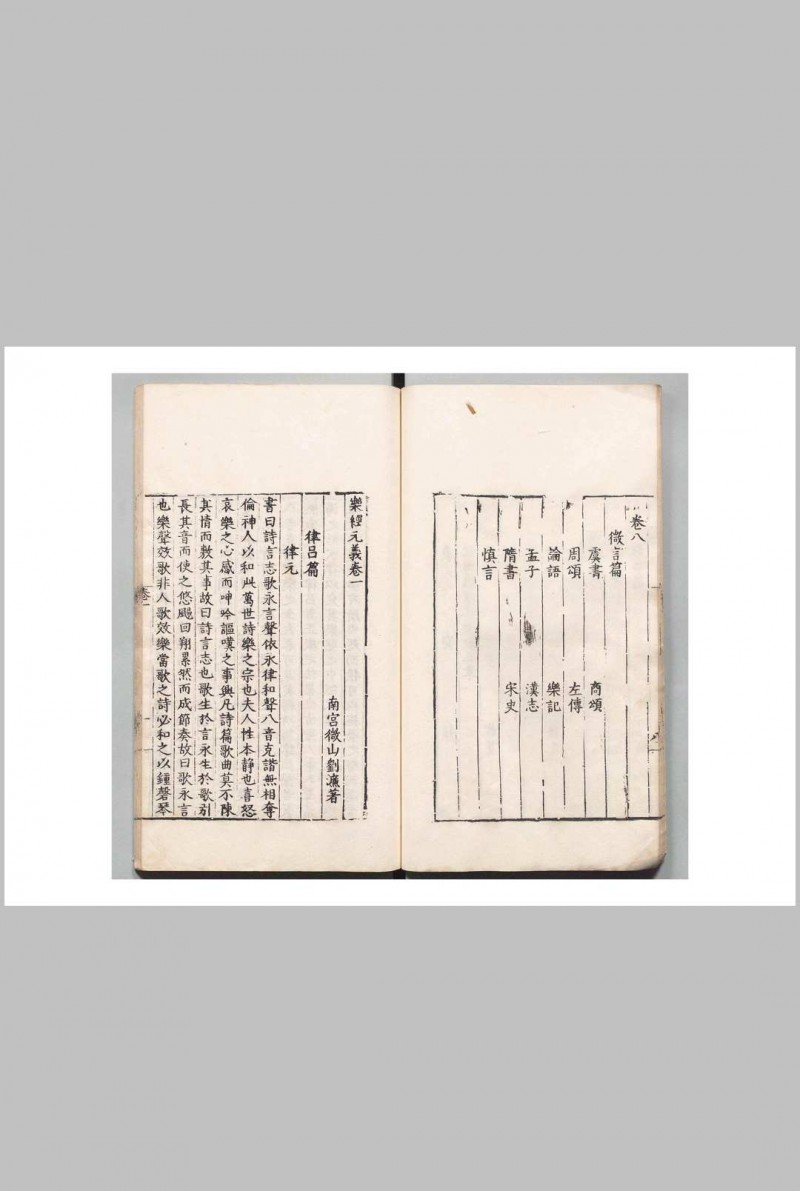 卷八
微言篇
虞書 商頌
周頌 左傳
論語 樂記
孟子 漢志
隋書 宋史
慎言
樂經元義卷一
南宮微山劉濂著
律呂篇
律元
書曰詩言志歌永言聲依永律和聲八音克諧無相奪
倫神人以和此萬世詩樂之宗也夫人性本静也喜怒
哀樂之心感而呻吟謳嘆之事興凡詩篇歌曲莫不陳
其情而敷其事故曰詩言志也歌生於言永生於歌引
長其音而使之悠颺回翔累然而成節奏故曰歌永言
也樂聲效歌非人歌效樂當歌之詩必和之以鍾磬琴
卷一